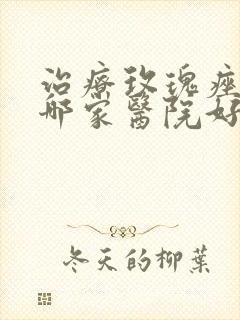 治療玫瑰痤
哪家醫院好
冬天的柳葉